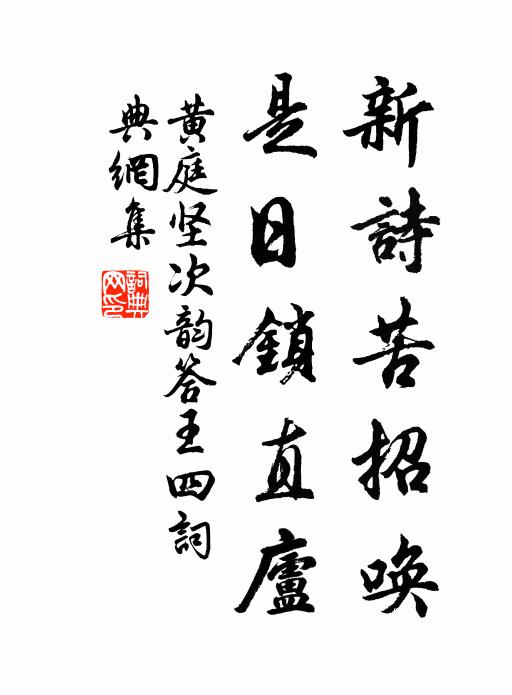 新詩苦招唤
是日鎖直廬
黄庭坚次韵答王四詞
典網集
詞典網印